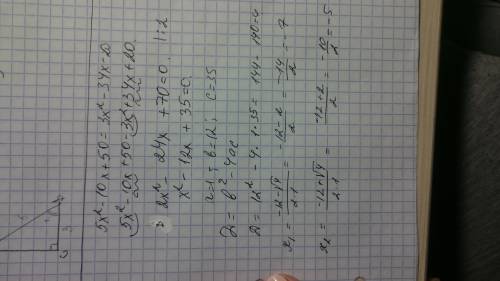 5x² - 10x + 50 = 3x² - 34x - 20
5x² - 10x + 50 - 3x² + 34x + 20.
2x² - 24x + 70 = 0. | : 2
x² - 12x + 35 = 0.
a = 1; b = 12; c = 35
D = b² - 4ac
D = 12² - 4 · 1 · 35 = 144 - 140 = 4
x₁ = (-12 - √4) / (2·1) = (-12 - 2) / 2 = -14 / 2 = -7
x₂ = (-12 + √4) / (2·1) = (-12 + 2) / 2 = -10 / 2 = -5